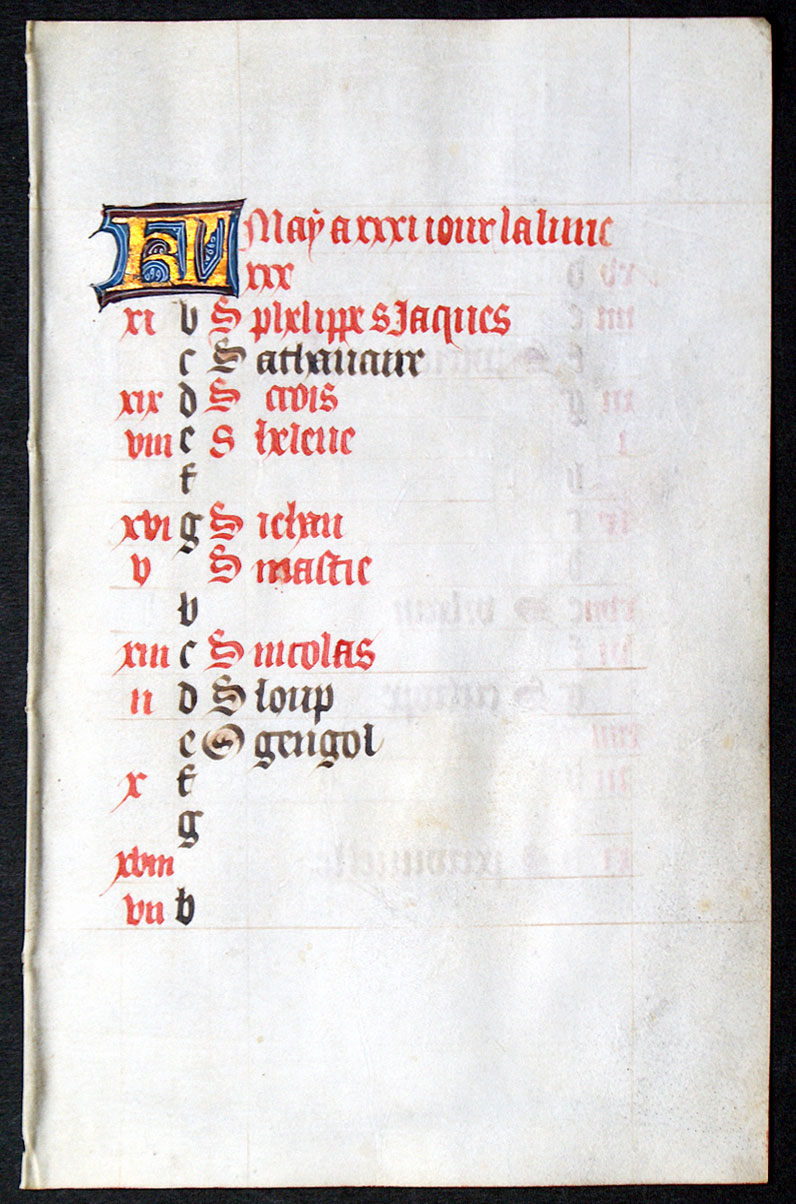 KL May a xxxi iour la lune
xxx
xi b S phelippe s Jaques
c S athanaux
xix d S crois
viii e S helene
f
xvi g S iehan
v S mastie
b
xiii c S nicolas
ii d S loup
e S gengol
x f
g
xviii
vii b